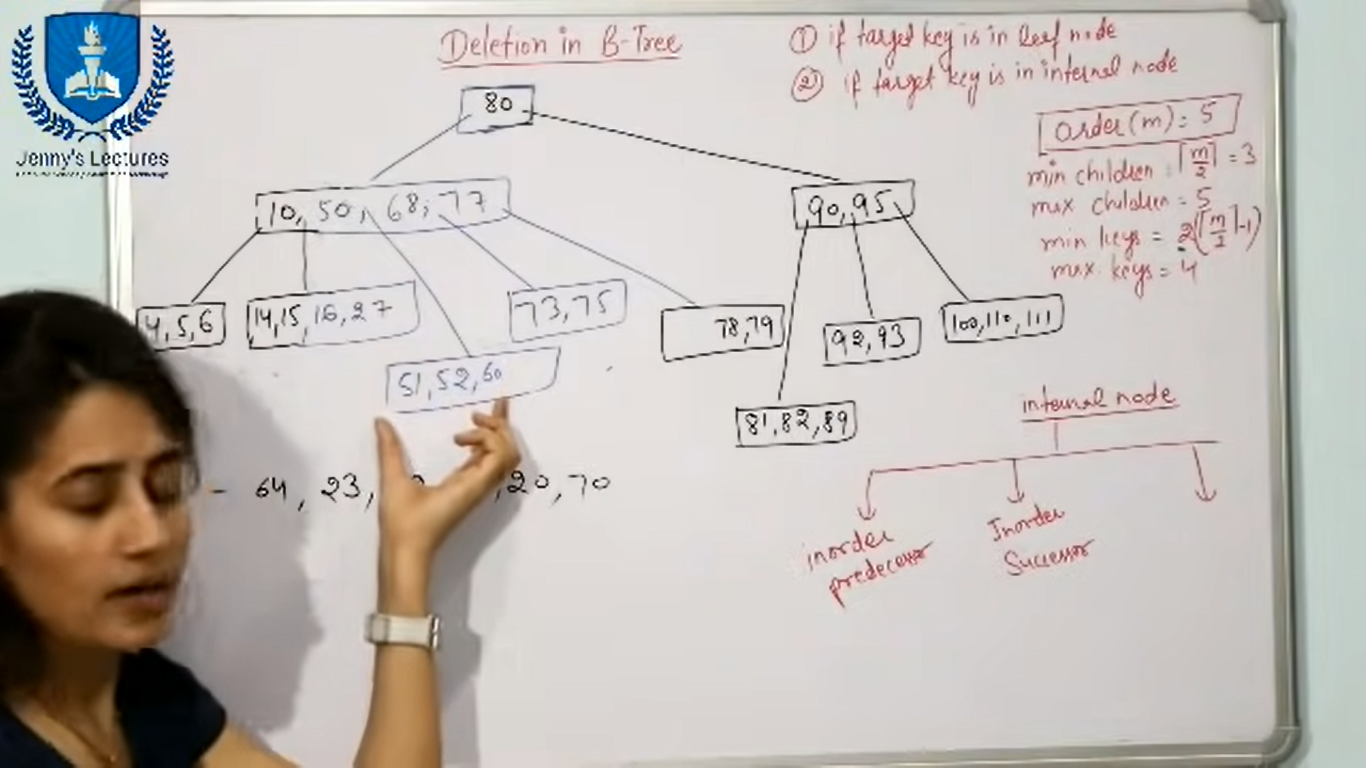 Jenny's Lectures
Deletion in B-Tree
① if target key is in leef node
② if target key is in internal node
80
Order(m) = 5
min children = ⌈m/2⌉ = 3
max children = 5
min keys = 2(⌈m/2⌉-1)
max. keys = 4
10, 50, 68, 77
90, 95
4, 5, 6
14, 15, 16, 27
73, 75
78, 79
92, 93
100, 110, 111
51, 52, 60
81, 82, 89
internal node
- 64, 23,
, 20, 70
inorder
predecessor
Inorder
Successor